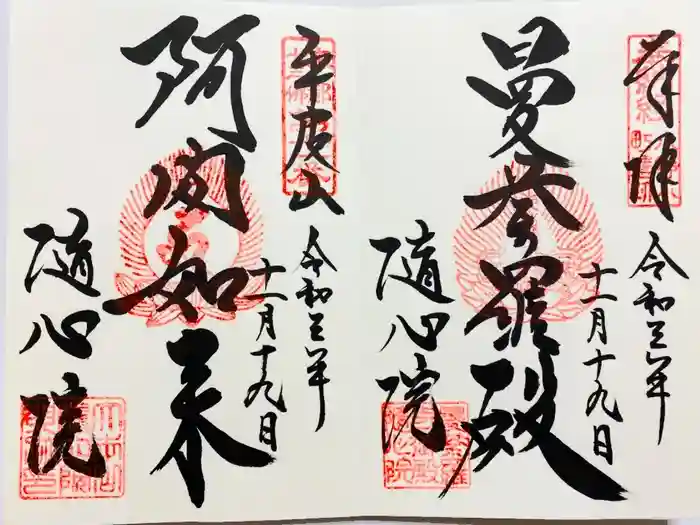 奉拝
令和三年
十一月十九日
曼荼羅殿
随心院
牛皮山
令和三年
十一月十九日
阿閦如来
随心院